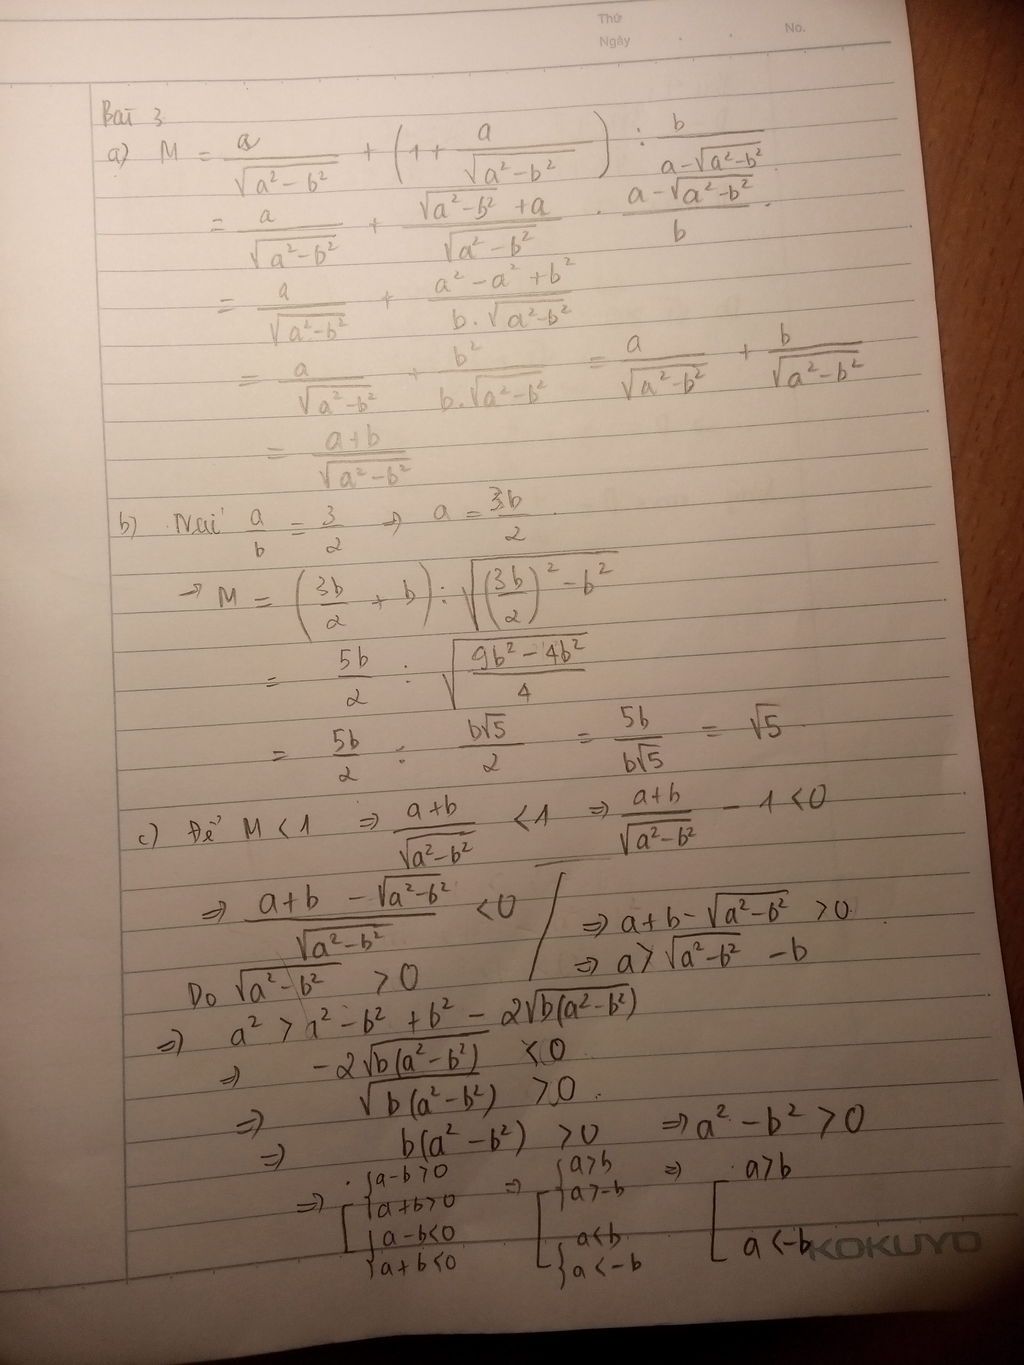 Thứ
Ngày . . No.
Bài 3
a) M = a/√(a² - b²) + (1 + a/√(a² - b²)) : b/(a - √(a² - b²))
= a/√(a² - b²) + (√(a² - b²) + a)/√(a² - b²) . (a - √(a² - b²))/b .
= a/√(a² - b²) + (a² - a² + b²)/(b.√(a² - b²))
= a/√(a² - b²) + b²/(b.√(a² - b²)) = a/√(a² - b²) + b/√(a² - b²)
= (a + b)/√(a² - b²)
b) a/b = 3/2 => a = 3b/2 .
→ M = (3b/2 + b) : √((3b/2)² - b²)
= 5b/2 : √((9b² - 4b²)/4)
= 5b/2 : b√5/2 = 5b/b√5 = √5
c) Để M < 1 => (a + b)/√(a² - b²) < 1 => (a + b)/√(a² - b²) - 1 < 0
=> (a + b - √(a² - b²))/√(a² - b²) < 0
Do √(a² - b²) > 0
=> a + b - √(a² - b²) > 0
=> a > √(a² - b²) - b
=> a² > a² - b² + b² - 2√(b(a² - b²))
=> -2√(b(a² - b²)) < 0
=> √(b(a² - b²)) > 0 .
=> b(a² - b²) > 0 => a² - b² > 0
=> [ { a - b > 0 => [ { a > b => [ a > b
{ a + b > 0 { a > -b
{ a - b < 0 { a < b
{ a + b < 0 { a < -b a < -b
KOKUYO